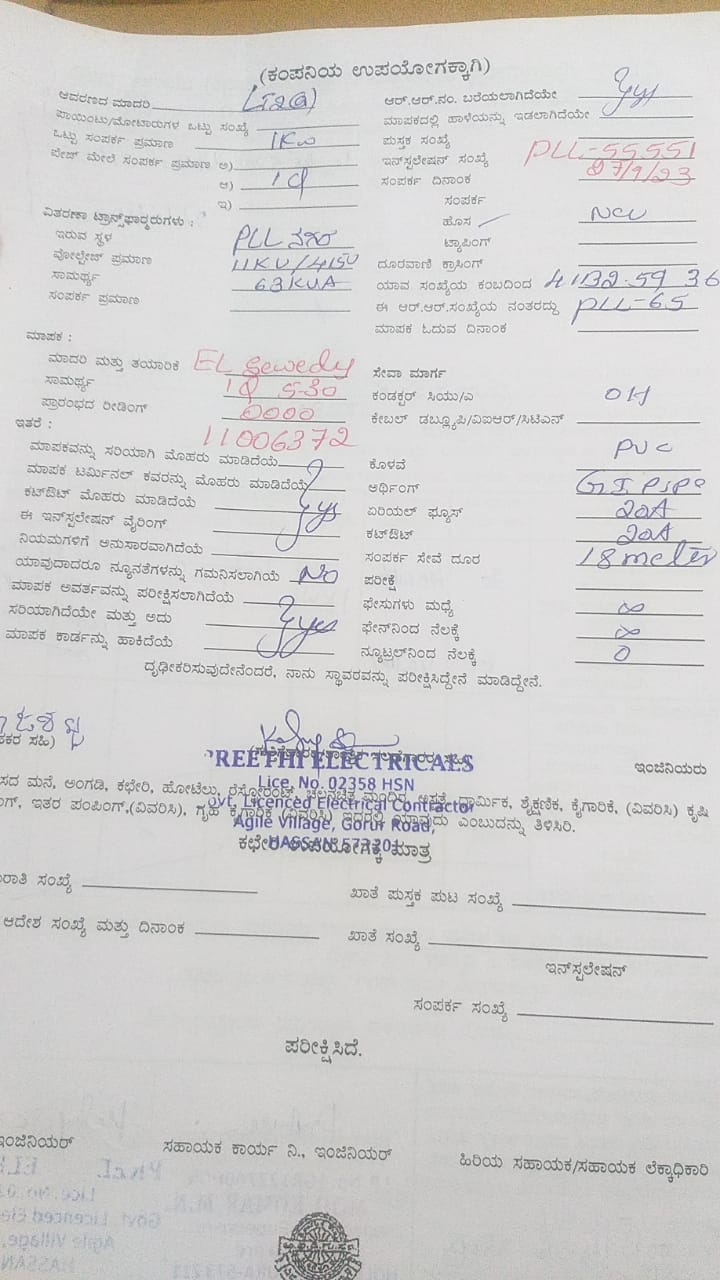 (ಕಂಪನಿಯ ಉಪಯೋಗಕ್ಕಾಗಿ)
ಆವರಣದ ಮಾದರಿ LT2(a)
ಪಾಯಿಂಟು/ಮೋಟಾರುಗಳ ಒಟ್ಟು ಸಂಖ್ಯೆ
ಒಟ್ಟು ಸಂಪರ್ಕ ಪ್ರಮಾಣ 1Kw
ಫೇಜ್ ಮೇಲೆ ಸಂಪರ್ಕ ಪ್ರಮಾಣ ಅ)
ಆ) 1φ
ಇ)
ವಿತರಣಾ ಟ್ರಾನ್ಸ್‌ಫಾರ್‍ಮರುಗಳು :
ಇರುವ ಸ್ಥಳ PLL ನಗರ
ವೋಲ್ಟೇಜ್ ಪ್ರಮಾಣ 11KV/415V
ಸಾಮರ್ಥ್ಯ 63KVA
ಸಂಪರ್ಕ ಪ್ರಮಾಣ
ಆರ್.ಆರ್.ನಂ. ಬರೆಯಲಾಗಿದೆಯೇ yes
ಮಾಪಕದಲ್ಲಿ ಹಾಳೆಯನ್ನು ಇಡಲಾಗಿದೆಯೇ
ಪುಸ್ತಕ ಸಂಖ್ಯೆ
ಇನ್‌ಸ್ಟಲೇಷನ್ ಸಂಖ್ಯೆ PLL-55551
ಸಂಪರ್ಕ ದಿನಾಂಕ 27/9/23
ಸಂಪರ್ಕ
ಹೊಸ New
ಟ್ಯಾಪಿಂಗ್
ದೂರವಾಣಿ ಕ್ರಾಸಿಂಗ್
ಯಾವ ಸಂಖ್ಯೆಯ ಕಂಬದಿಂದ 4132.5936
ಈ ಆರ್.ಆರ್.ಸಂಖ್ಯೆಯ ನಂತರದ್ದು PLL-65
ಮಾಪಕ ಓದುವ ದಿನಾಂಕ
ಮಾಪಕ :
ಮಾದರಿ ಮತ್ತು ತಯಾರಿಕೆ EL Sewedy
ಸಾಮರ್ಥ್ಯ 1φ 5-30
ಪ್ರಾರಂಭದ ರೀಡಿಂಗ್ 0000
11006372
ಇತರೆ :
ಮಾಪಕವನ್ನು ಸರಿಯಾಗಿ ಮೊಹರು ಮಾಡಿದೆಯೆ
ಮಾಪಕ ಟರ್ಮಿನಲ್ ಕವರನ್ನು ಮೊಹರು ಮಾಡಿದೆಯೆ
ಕಟ್‌ಔಟ್ ಮೊಹರು ಮಾಡಿದೆಯೆ yes
ಈ ಇನ್‌ಸ್ಟಲೇಷನ್ ವೈರಿಂಗ್
ನಿಯಮಗಳಿಗೆ ಅನುಸಾರವಾಗಿದೆಯೆ
ಯಾವುದಾದರೂ ನ್ಯೂನತೆಗಳನ್ನು ಗಮನಿಸಲಾಗಿಯೆ No
ಮಾಪಕ ಅವರ್ತವನ್ನು ಪರೀಕ್ಷಿಸಲಾಗಿದೆಯೆ
ಸರಿಯಾಗಿದೆಯೇ ಮತ್ತು ಅದು yes
ಮಾಪಕ ಕಾರ್ಡನ್ನು ಹಾಕಿದೆಯೆ
ಸೇವಾ ಮಾರ್ಗ
ಕಂಡಕ್ಟರ್ ಸಿಯು/ಎ OH
ಕೇಬಲ್ ಡಬ್ಲ್ಯೂಪಿ/ವಿಐಆರ್/ಸಿಟಿಎನ್
ಕೊಳವೆ PVC
ಅರ್ಥಿಂಗ್ GI Pipe
ಏರಿಯಲ್ ಫ್ಯೂಸ್ 20A
ಕಟ್‌ಔಟ್ 20A
ಸಂಪರ್ಕ ಸೇವೆ ದೂರ 18 meter
ಪರೀಕ್ಷೆ
ಫೇಸುಗಳು ಮಧ್ಯೆ ∞
ಫೇನ್‌ನಿಂದ ನೆಲಕ್ಕೆ ∞
ನ್ಯೂಟ್ರಲ್‌ನಿಂದ ನೆಲಕ್ಕೆ 0
ದೃಢೀಕರಿಸುವುದೇನೆಂದರೆ, ನಾನು ಸ್ಥಾವರವನ್ನು ಪರೀಕ್ಷಿಸಿದ್ದೇನೆ ಮಾಡಿದ್ದೇನೆ.
ಪಕರ ಸಹಿ)
PREETHI ELECTRICALS
ಇಂಜಿನಿಯರು
Lice. No. 02358 HSN
ಸದ ಮನೆ, ಅಂಗಡಿ, ಕಛೇರಿ, ಹೋಟೆಲು, ರೆಸ್ಟೋರೆಂಟ್, ಚಲನಚಿತ್ರ ಮಂದಿರ, ಆಸ್ಪತ್ರೆ, ಧಾರ್ಮಿಕ, ಶೈಕ್ಷಣಿಕ, ಕೈಗಾರಿಕೆ, (ವಿವರಿಸಿ) ಕೃಷಿ
Govt. Licenced Electrical Contractor
ಗ್, ಇತರ ಪಂಪಿಂಗ್,(ವಿವರಿಸಿ), ಗೃಹ ಕೈಗಾರಿಕೆ (ವಿವರಿಸಿ) ಇದರಲ್ಲಿ ಯಾವುದು ಎಂಬುದನ್ನು ತಿಳಿಸಿರಿ.
Agile Village, Gorur Road,
HASSAN-573201
ಕಛೇರಿ ಉಪಯೋಗಕ್ಕೆ ಮಾತ್ರ
ರಾತಿ ಸಂಖ್ಯೆ
ಖಾತೆ ಪುಸ್ತಕ ಪುಟ ಸಂಖ್ಯೆ
ಆದೇಶ ಸಂಖ್ಯೆ ಮತ್ತು ದಿನಾಂಕ
ಖಾತೆ ಸಂಖ್ಯೆ
ಇನ್‌ಸ್ಟಲೇಷನ್
ಸಂಪರ್ಕ ಸಂಖ್ಯೆ
ಪರೀಕ್ಷಿಸಿದೆ.
ಇಂಜಿನಿಯರ್
ಸಹಾಯಕ ಕಾರ್ಯ ನಿ., ಇಂಜಿನಿಯರ್
ಹಿರಿಯ ಸಹಾಯಕ/ಸಹಾಯಕ ಲೆಕ್ಕಾಧಿಕಾರಿ